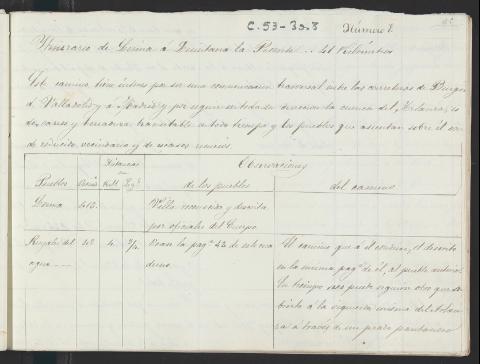 C.53-3o.8
Número 7.
Itinerario de Lerma á Quintana la Puente
Este camino tiene interes por ser una comunicacion trasversal entre las carreteras de Burgos
á Valladolid y á Madrid y por seguir en toda su direccion la cuenca del Arlanza, es
de carros y herradura, transitable en todo tiempo y los pueblos que asientan sobre él son
de reducido vecindario y de escasos recursos
Distancias
Observaciones
Pueblos
de los pueblos
del camino
Lerma
Villa reconocida y descrita
por oficiales del Cuerpo
Ruyales del
4
Vean la pag.ª 43 de este cua
agua
derno.
El camino que á él conduce, el descrito
en la misma pag.ª de él, al pueblo anterior.
En tiempo seco puede seguirse otro que se
á la izquierda misma del Arlan
za á través de un prado pantanoso